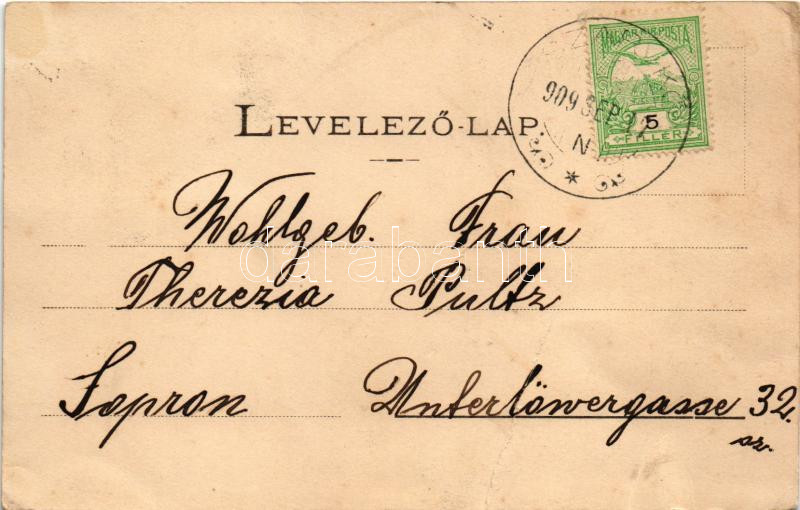 MAGYAR KIR. POSTA
5
FILLÉR
909 SEP
N
LEVELEZŐ-LAP
Wohlgeb. Frau
Therezia Pultz
Sopron Unterlöwergasse 32.
sz.
darabanth